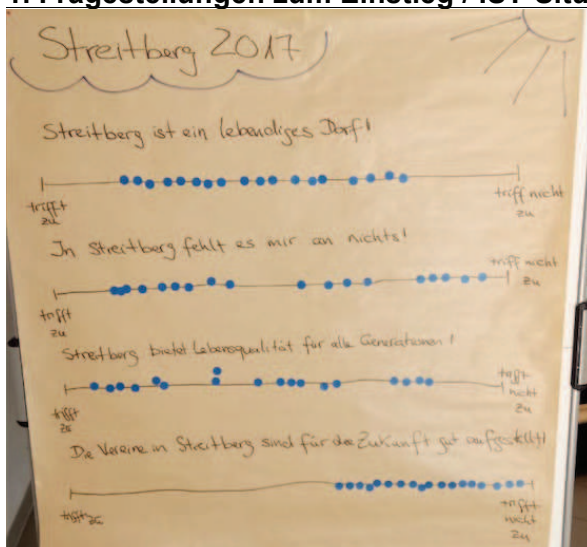 Streitberg 2017
Streitberg ist ein lebendiges Dorf!
trifft
zu
triff nicht
zu
In Streitberg fehlt es mir an nichts!
trifft
zu
triff nicht
zu
Streitberg bietet Lebensqualität für alle Generationen!
trifft
zu
trifft
nicht
zu
Die Vereine in Streitberg sind für die Zukunft gut aufgestellt!
trifft
zu
trifft
nicht
zu